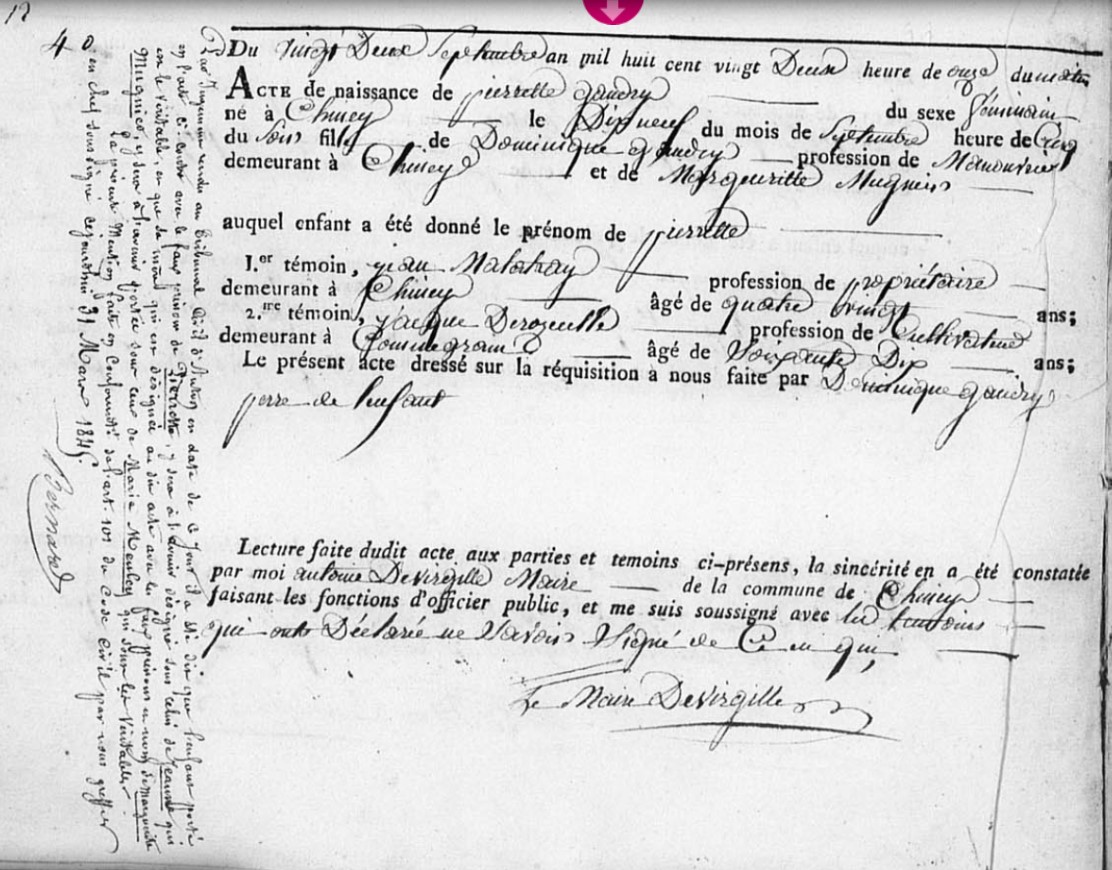 12
4 0
Du vingt Deux Septembre an mil huit cent vingt Deux heure de onze du matin
ACTE de naissance de pierrette gaudry du sexe féminin
né a Chiney le Dix neuf du mois de Septembre heure de Cinq
du Soir fille de Dominique gaudry profession de Manouvrier
demeurant à Chiney et de Margueritte Mugnier
auquel enfant a été donné le prénom de pierrette
1.er témoin, jean profession de propriétaire
demeurant à Chiney âgé de quatre vingt ans;
2.me témoin, jacque profession de Cultivateur
demeurant à âgé de Soixante Dix ans;
Le présent acte dressé sur la réquisition à nous faite par Dominique gaudry
perre de lenfant
Lecture faite dudit acte aux parties et temoins ci-présens, la sincérité en a été constatée
par moi antoine Devirgille Maire de la commune de Chiney
faisant les fonctions d'officier public, et me suis soussigné avec les temoins
qui onts Déclarée ne Savoir Signé de Ce en quis
Le Maire Devirgille
Par Jugement rendu au Tribunal Civil d'Autun en date de ce jour il a été dit que l'enfant porté
en l'acte ci-contre avec le faux prénom de Pierrette, y sera à l'avenir désigné sous celui de Jeanne qui
est le véritable, et que sa mère qui est désignée au dit acte avec les faux prénom et nom de Marguerite
Mugnier, y sera à l'avenir portée sous ceux de Marie qui sont les véritables.
La présente Mention faite en Conformité de l'art. 101 du Code Civil par nous greffier
en chef soussigné cejourd'hui 31 Mars 1845.
Bernard